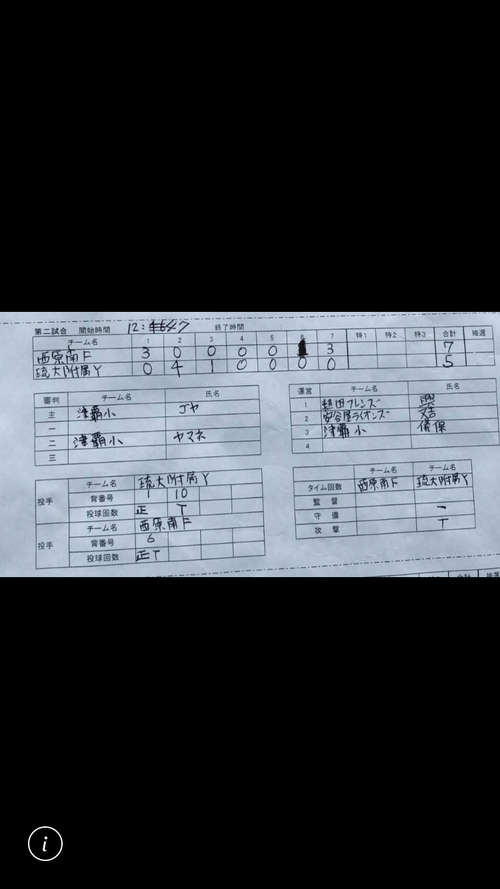 第二試合 開始時間 12: 47 終了時間
チーム名 1 2 3 4 5 6 7 特1 特2 特3 合計 抽選
西原南F 3 0 0 0 0 1 3 7
琉大附属Y 0 4 1 0 0 0 0 5
審判 チーム名 氏名
主 津覇小 ゴヤ
一
二 津覇小 ヤマネ
三
運営 チーム名 氏名
1 フレンズ
2 安谷屋ライオンズ
3 津覇小 儀保
4
投手 チーム名 琉大附属Y
背番号 1 10
投球回数 正 T
投手 チーム名 西原南F
背番号 6
投球回数 正T
チーム名 チーム名
タイム回数 西原南F 琉大附属Y
監督
守備 一
攻撃 T
合計 抽選